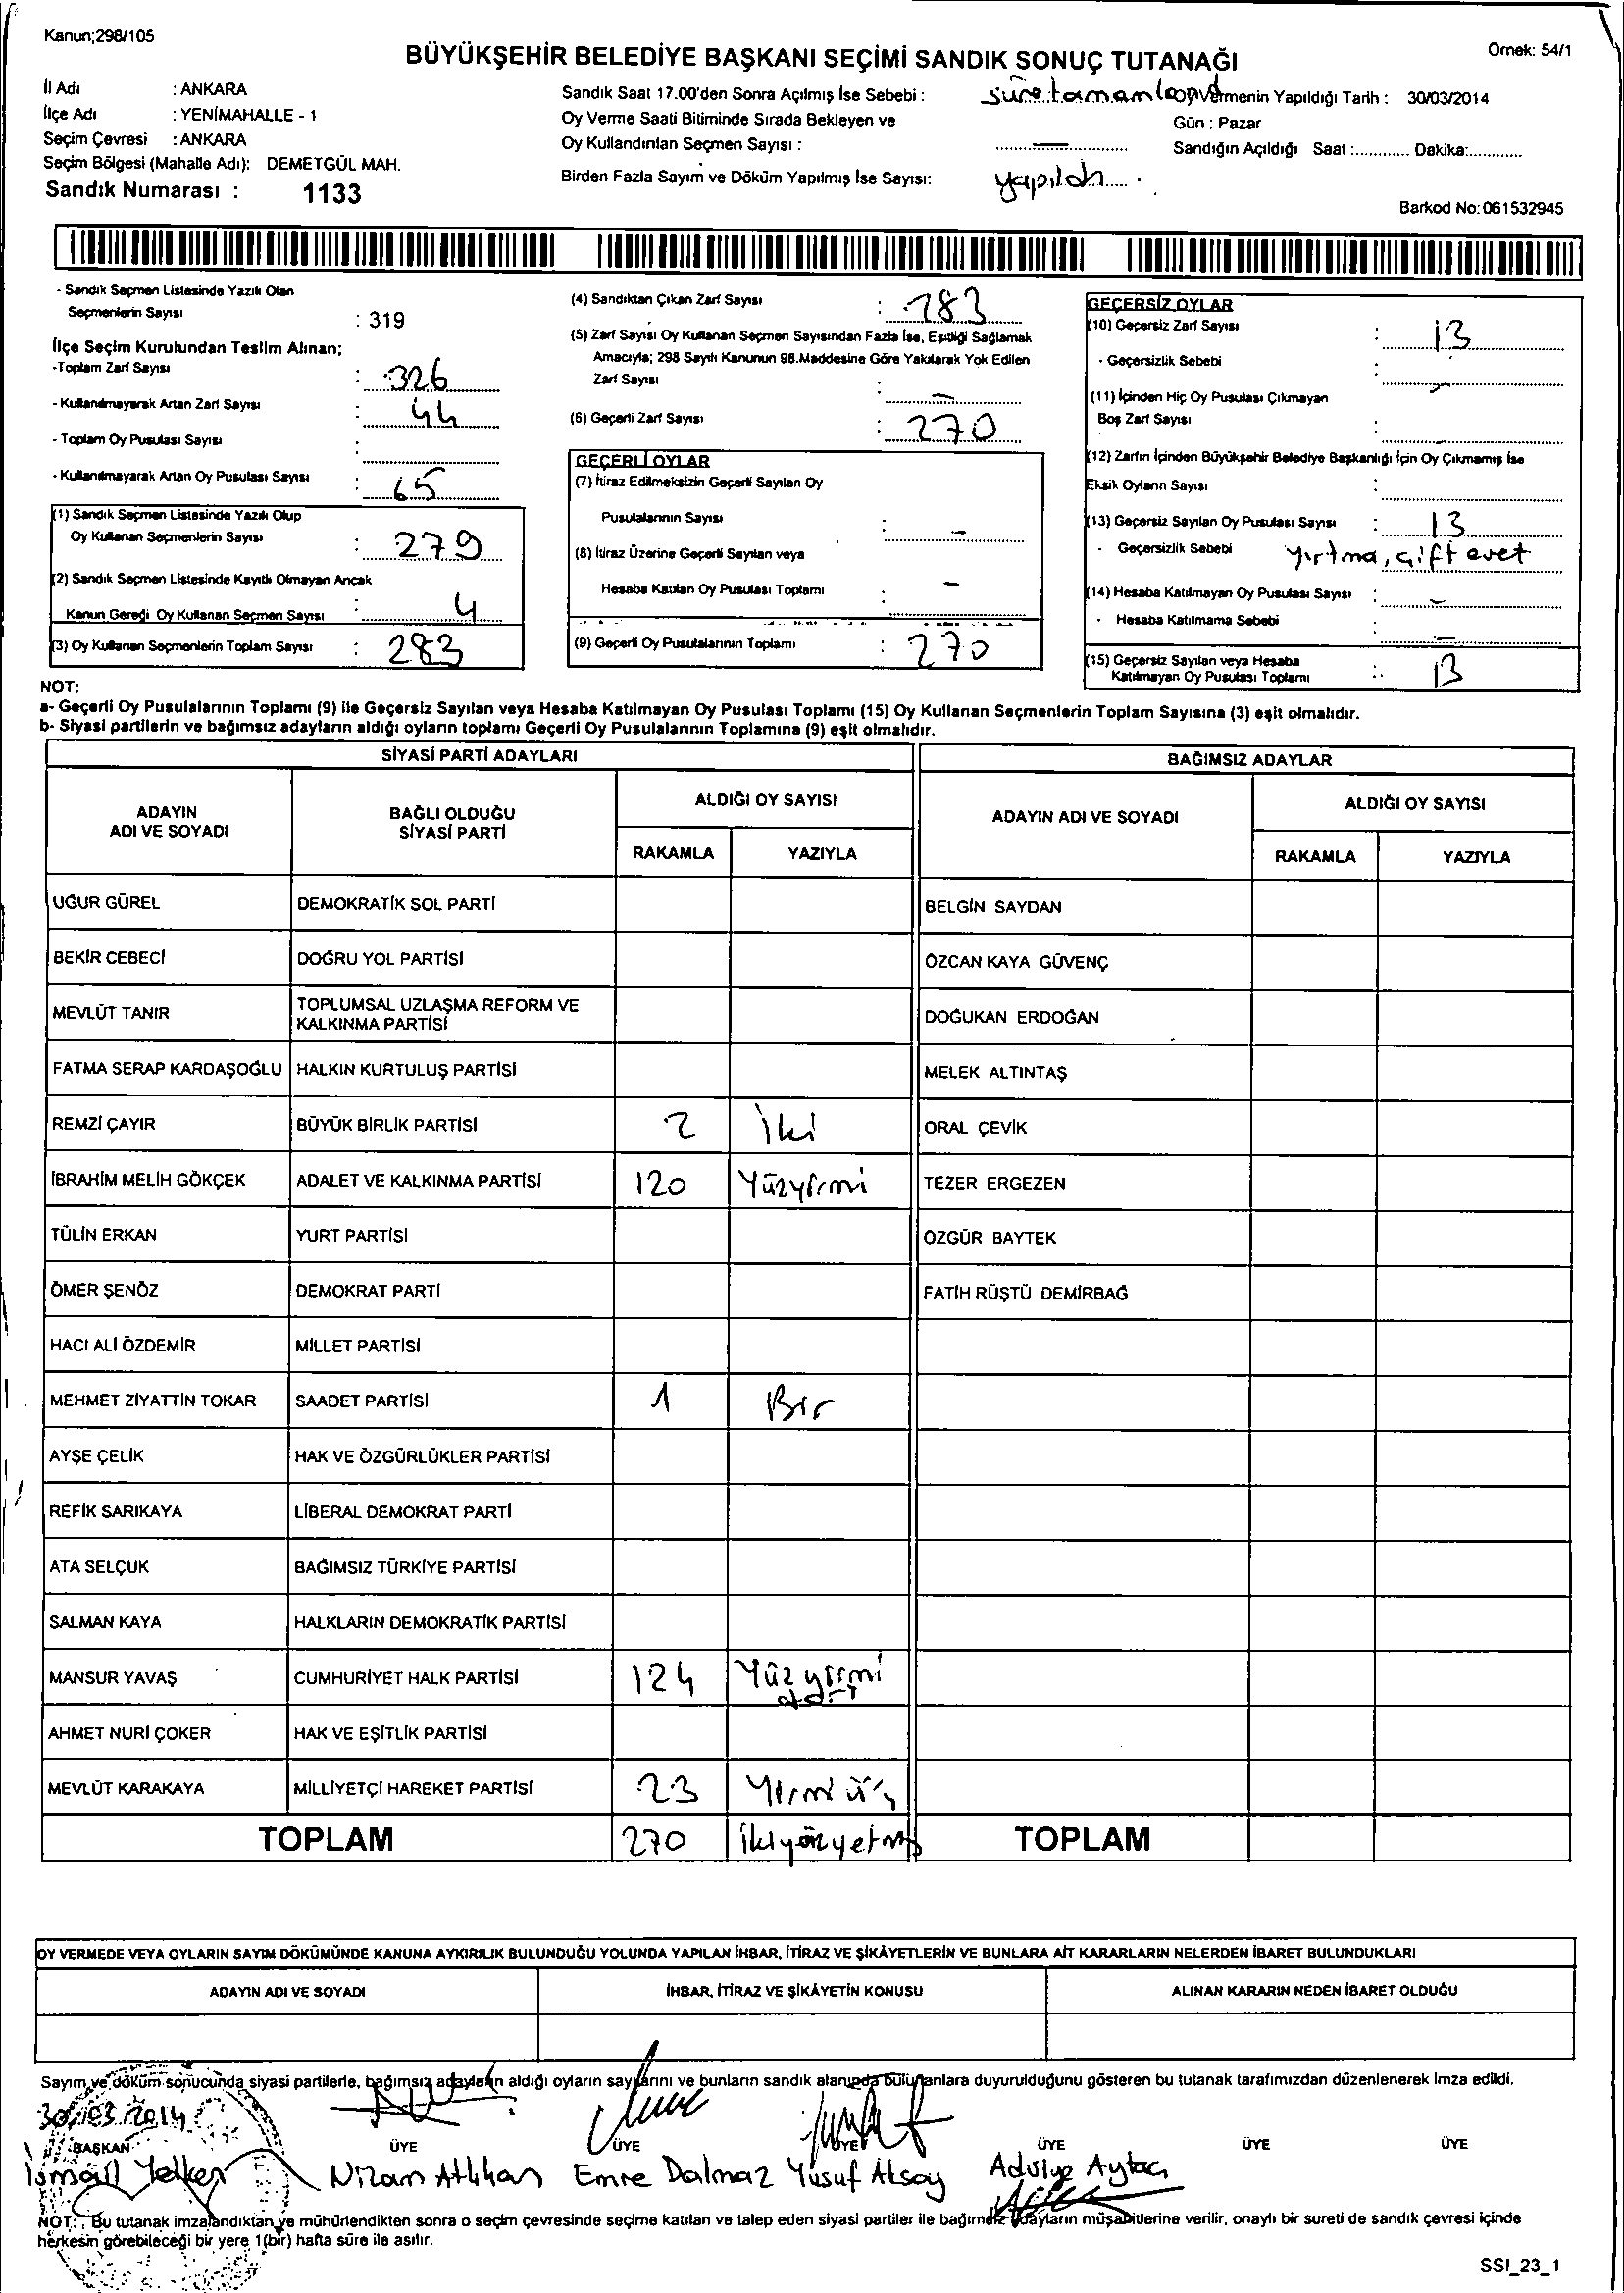 Kanun;298/105
Örnek: 54/1
BÜYÜKŞEHİR BELEDİYE BAŞKANI SEÇİMİ SANDIK SONUÇ TUTANAĞI
İl Adı : ANKARA
İlçe Adı : YENİMAHALLE - 1
Seçim Çevresi : ANKARA
Seçim Bölgesi (Mahalle Adı): DEMETGÜL MAH.
Sandık Numarası : 1133
Sandık Saat 17.00'den Sonra Açılmış İse Sebebi :
Oy Verme Saati Bitiminde Sırada Bekleyen ve
Oy Kullandırılan Seçmen Sayısı : —
Birden Fazla Sayım ve Döküm Yapılmış İse Sayısı: yapıldı
Vermenin Yapıldığı Tarih : 30/03/2014
Gün : Pazar
Sandığın Açıldığı Saat :............ Dakika:............
Barkod No:061532945
- Sandık Seçmen Listesinde Yazılı Olan
Seçmenlerin Sayısı : 319
İlçe Seçim Kurulundan Teslim Alınan;
-Toplam Zarf Sayısı : 326
- Kullanılmayarak Artan Zarf Sayısı : 44
- Toplam Oy Pusulası Sayısı :
- Kullanılmayarak Artan Oy Pusulası Sayısı : 65
(1) Sandık Seçmen Listesinde Yazılı Olup
Oy Kullanan Seçmenlerin Sayısı : 279
(2) Sandık Seçmen Listesinde Kayıtlı Olmayan Ancak
Kanun Gereği Oy Kullanan Seçmen Sayısı : 4
(3) Oy Kullanan Seçmenlerin Toplam Sayısı : 283
(4) Sandıktan Çıkan Zarf Sayısı : 283
(5) Zarf Sayısı Oy Kullanan Seçmen Sayısından Fazla İse, Eşitliği Sağlamak
Amacıyla; 298 Sayılı Kanunun 98.Maddesine Göre Yakılarak Yok Edilen
Zarf Sayısı : —
(6) Geçerli Zarf Sayısı : 270
GEÇERLİ OYLAR
(7) İtiraz Edilmeksizin Geçerli Sayılan Oy
Pusulalarının Sayısı : —
(8) İtiraz Üzerine Geçerli Sayılan veya
Hesaba Katılan Oy Pusulası Toplamı : —
(9) Geçerli Oy Pusulalarının Toplamı : 270
GEÇERSİZ OYLAR
(10) Geçersiz Zarf Sayısı : 13
- Geçersizlik Sebebi :
(11) İçinden Hiç Oy Pusulası Çıkmayan
Boş Zarf Sayısı : -
(12) Zarfın İçinden Büyükşehir Belediye Başkanlığı İçin Oy Çıkmamış İse
Eksik Oyların Sayısı :
(13) Geçersiz Sayılan Oy Pusulası Sayısı : 13
- Geçersizlik Sebebi yırtma, çift evet
(14) Hesaba Katılmayan Oy Pusulası Sayısı : —
- Hesaba Katılmama Sebebi : —
(15) Geçersiz Sayılan veya Hesaba
Katılmayan Oy Pusulası Toplamı : 13
NOT:
a- Geçerli Oy Pusulalarının Toplamı (9) ile Geçersiz Sayılan veya Hesaba Katılmayan Oy Pusulası Toplamı (15) Oy Kullanan Seçmenlerin Toplam Sayısına (3) eşit olmalıdır.
b- Siyasi partilerin ve bağımsız adayların aldığı oyların toplamı Geçerli Oy Pusulalarının Toplamına (9) eşit olmalıdır.
SİYASİ PARTİ ADAYLARI
BAĞIMSIZ ADAYLAR
ADAYIN ADI VE SOYADI
BAĞLI OLDUĞU SİYASİ PARTİ
ALDIĞI OY SAYISI
RAKAMLA YAZIYLA
ADAYIN ADI VE SOYADI
ALDIĞI OY SAYISI
RAKAMLA YAZIYLA
UĞUR GÜREL DEMOKRATİK SOL PARTİ BELGİN SAYDAN
BEKİR CEBECİ DOĞRU YOL PARTİSİ ÖZCAN KAYA GÜVENÇ
MEVLÜT TANIR TOPLUMSAL UZLAŞMA REFORM VE KALKINMA PARTİSİ DOĞUKAN ERDOĞAN
FATMA SERAP KARDAŞOĞLU HALKIN KURTULUŞ PARTİSİ MELEK ALTINTAŞ
REMZİ ÇAYIR BÜYÜK BİRLİK PARTİSİ 2 iki ORAL ÇEVİK
İBRAHİM MELİH GÖKÇEK ADALET VE KALKINMA PARTİSİ 120 Yüzyirmi TEZER ERGEZEN
TÜLİN ERKAN YURT PARTİSİ ÖZGÜR BAYTEK
ÖMER ŞENÖZ DEMOKRAT PARTİ FATİH RÜŞTÜ DEMİRBAĞ
HACI ALİ ÖZDEMİR MİLLET PARTİSİ
MEHMET ZİYATTİN TOKAR SAADET PARTİSİ 1 Bir
AYŞE ÇELİK HAK VE ÖZGÜRLÜKLER PARTİSİ
REFİK SARIKAYA LİBERAL DEMOKRAT PARTİ
ATA SELÇUK BAĞIMSIZ TÜRKİYE PARTİSİ
SALMAN KAYA HALKLARIN DEMOKRATİK PARTİSİ
MANSUR YAVAŞ CUMHURİYET HALK PARTİSİ 124 Yüzyirmi dört
AHMET NURİ ÇOKER HAK VE EŞİTLİK PARTİSİ
MEVLÜT KARAKAYA MİLLİYETÇİ HAREKET PARTİSİ 23 Yirmi üç
TOPLAM 270 ikiyüzyetmiş TOPLAM
OY VERMEDE VEYA OYLARIN SAYIM DÖKÜMÜNDE KANUNA AYKIRILIK BULUNDUĞU YOLUNDA YAPILAN İHBAR, İTİRAZ VE ŞİKÂYETLERİN VE BUNLARA AİT KARARLARIN NELERDEN İBARET BULUNDUKLARI
ADAYIN ADI VE SOYADI İHBAR, İTİRAZ VE ŞİKÂYETİN KONUSU ALINAN KARARIN NEDEN İBARET OLDUĞU
Sayım ve döküm sonucunda siyasi partilerle, bağımsız adayların aldığı oyların sayılarını ve bunların sandık alanında bulunanlara duyurulduğunu gösteren bu tutanak tarafımızdan düzenlenerek imza edildi.
30/03/2014
BAŞKAN ÜYE ÜYE ÜYE ÜYE ÜYE ÜYE
İsmail Yelken Nizam Atlıhan Emre Dalmaz Yusuf Aksoy Adviye Aytaç
NOT: Bu tutanak imzalandıktan ve mühürlendikten sonra o seçim çevresinde seçime katılan ve talep eden siyasi partiler ile bağımsız adayların müşahitlerine verilir, onaylı bir sureti de sandık çevresi içinde
herkesin görebileceği bir yere 1(bir) hafta süre ile asılır.
SSI_23_1